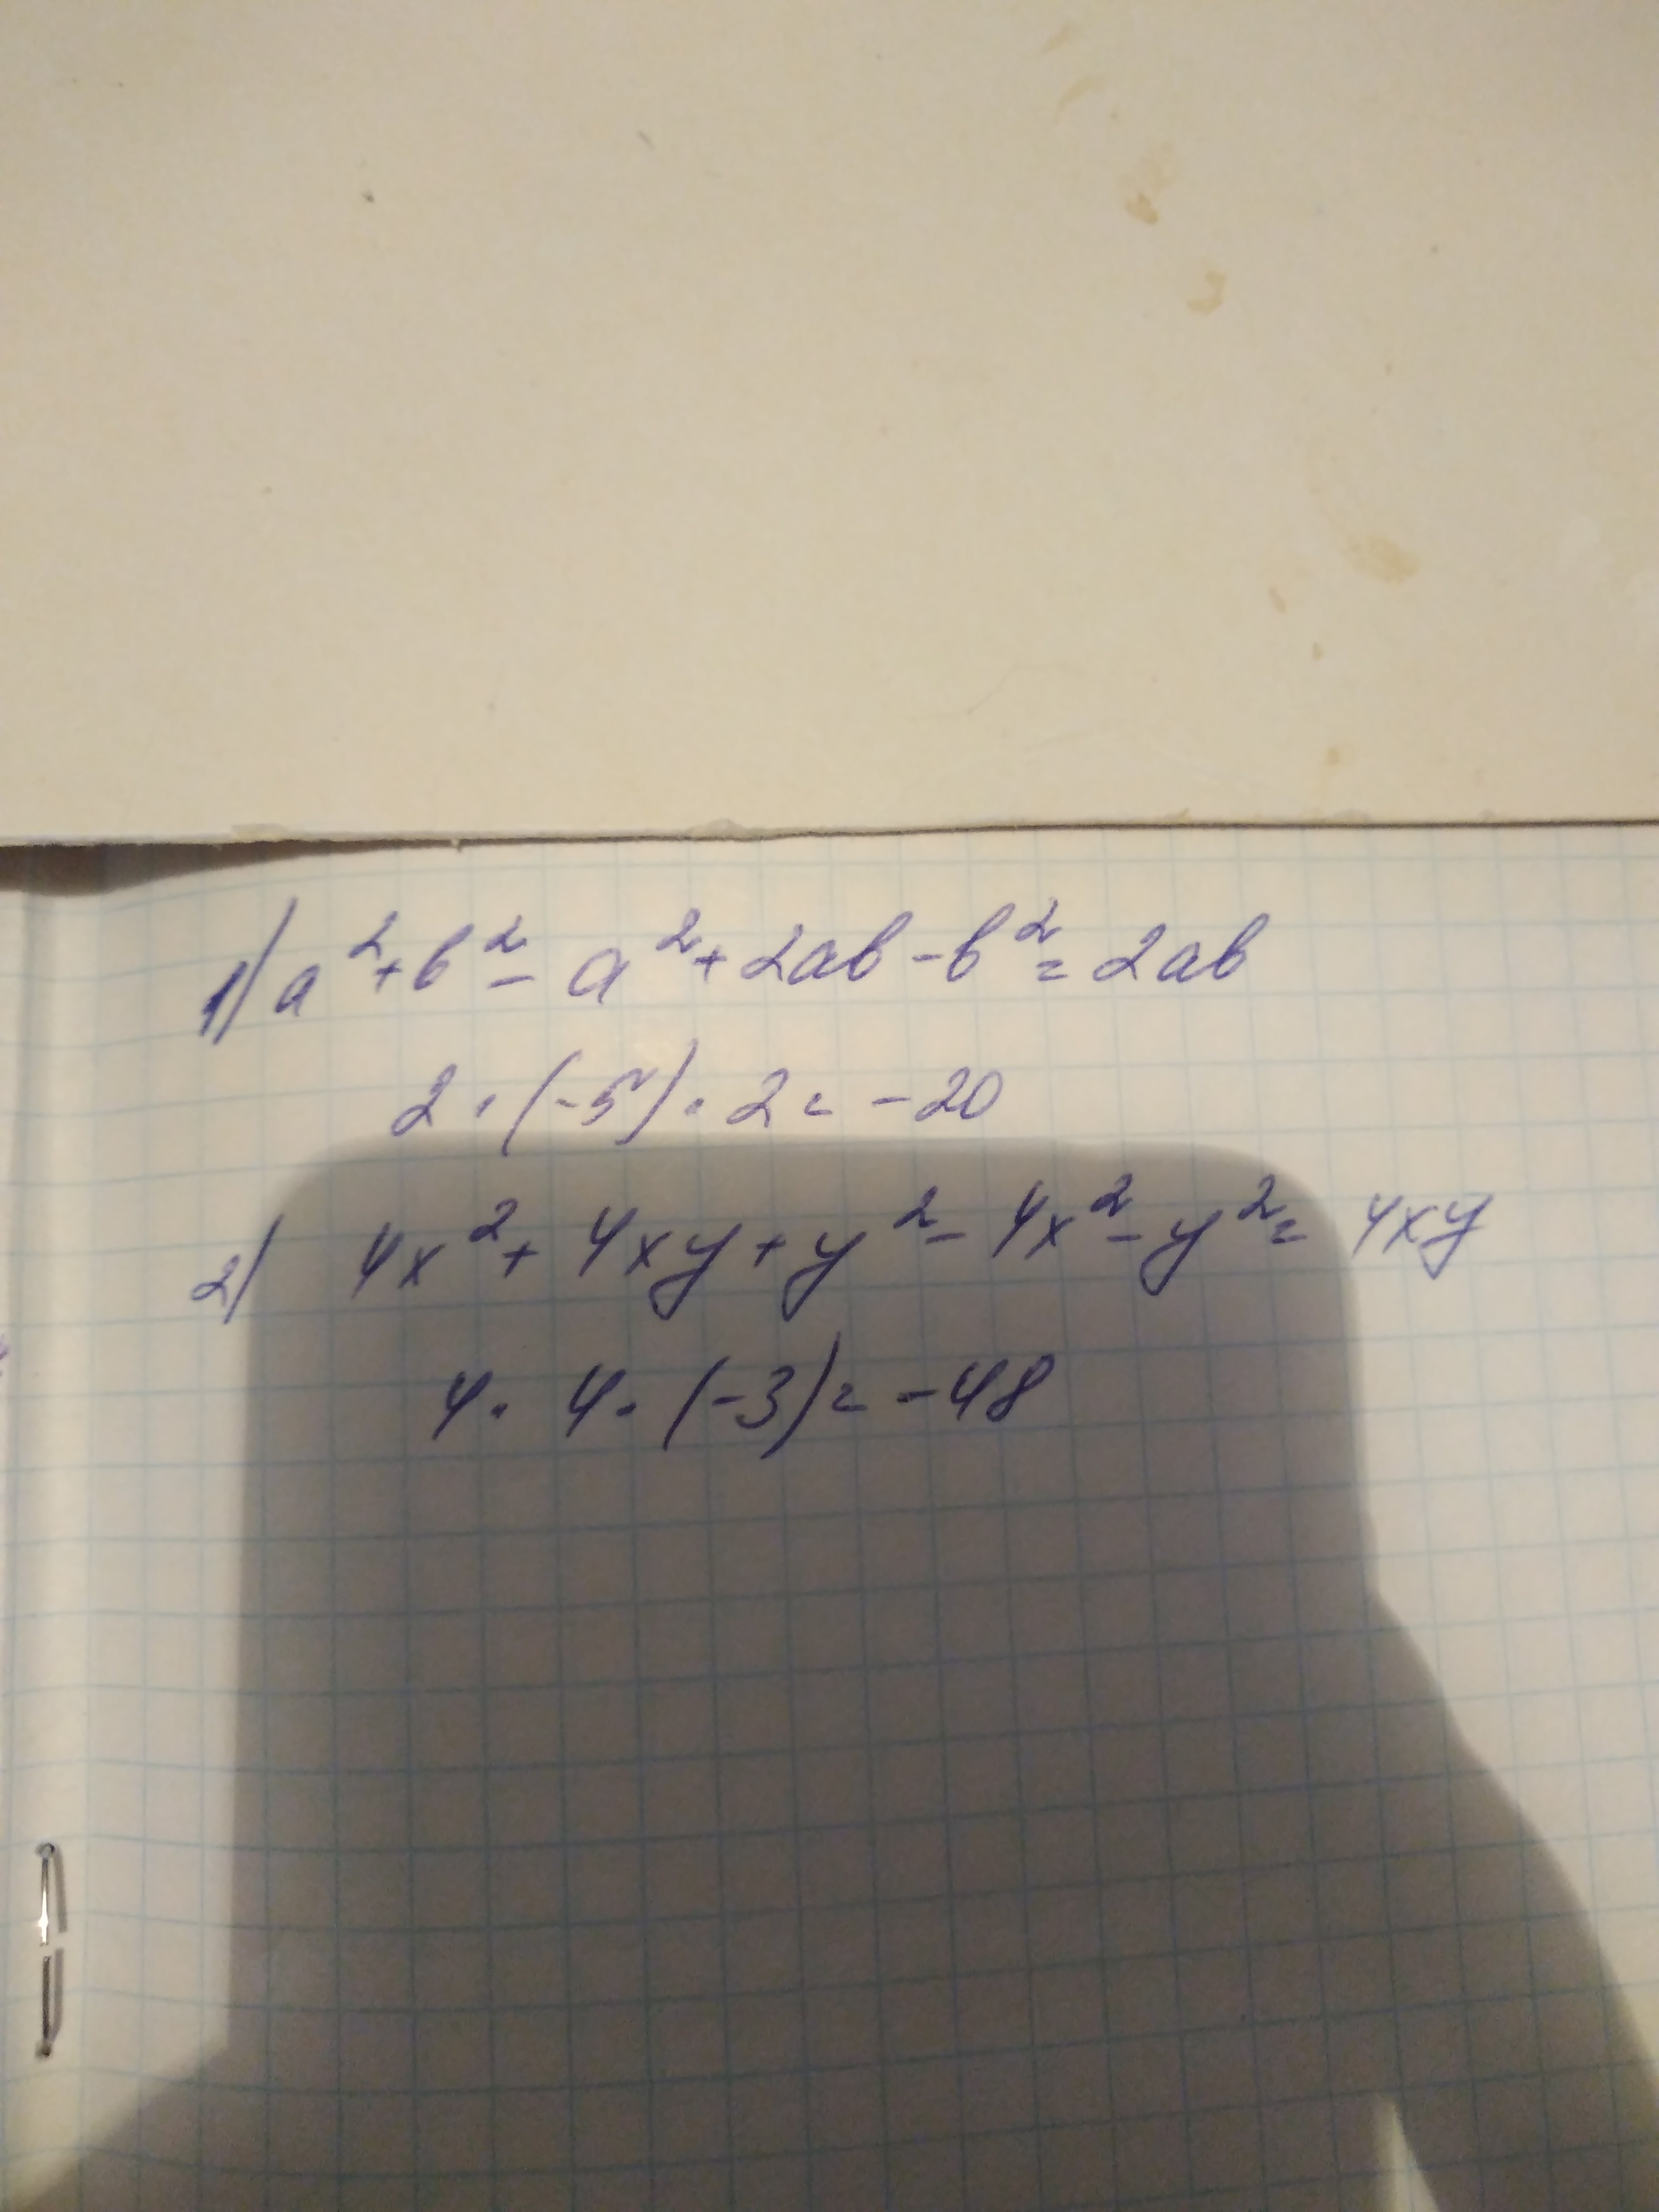 1) a² + b² - a² + 2ab - b² = 2ab
2 · (-5) · 2 = -20
2) 4x² + 4xy + y² - 4x² - y² = 4xy
4 · 4 · (-3) = -48